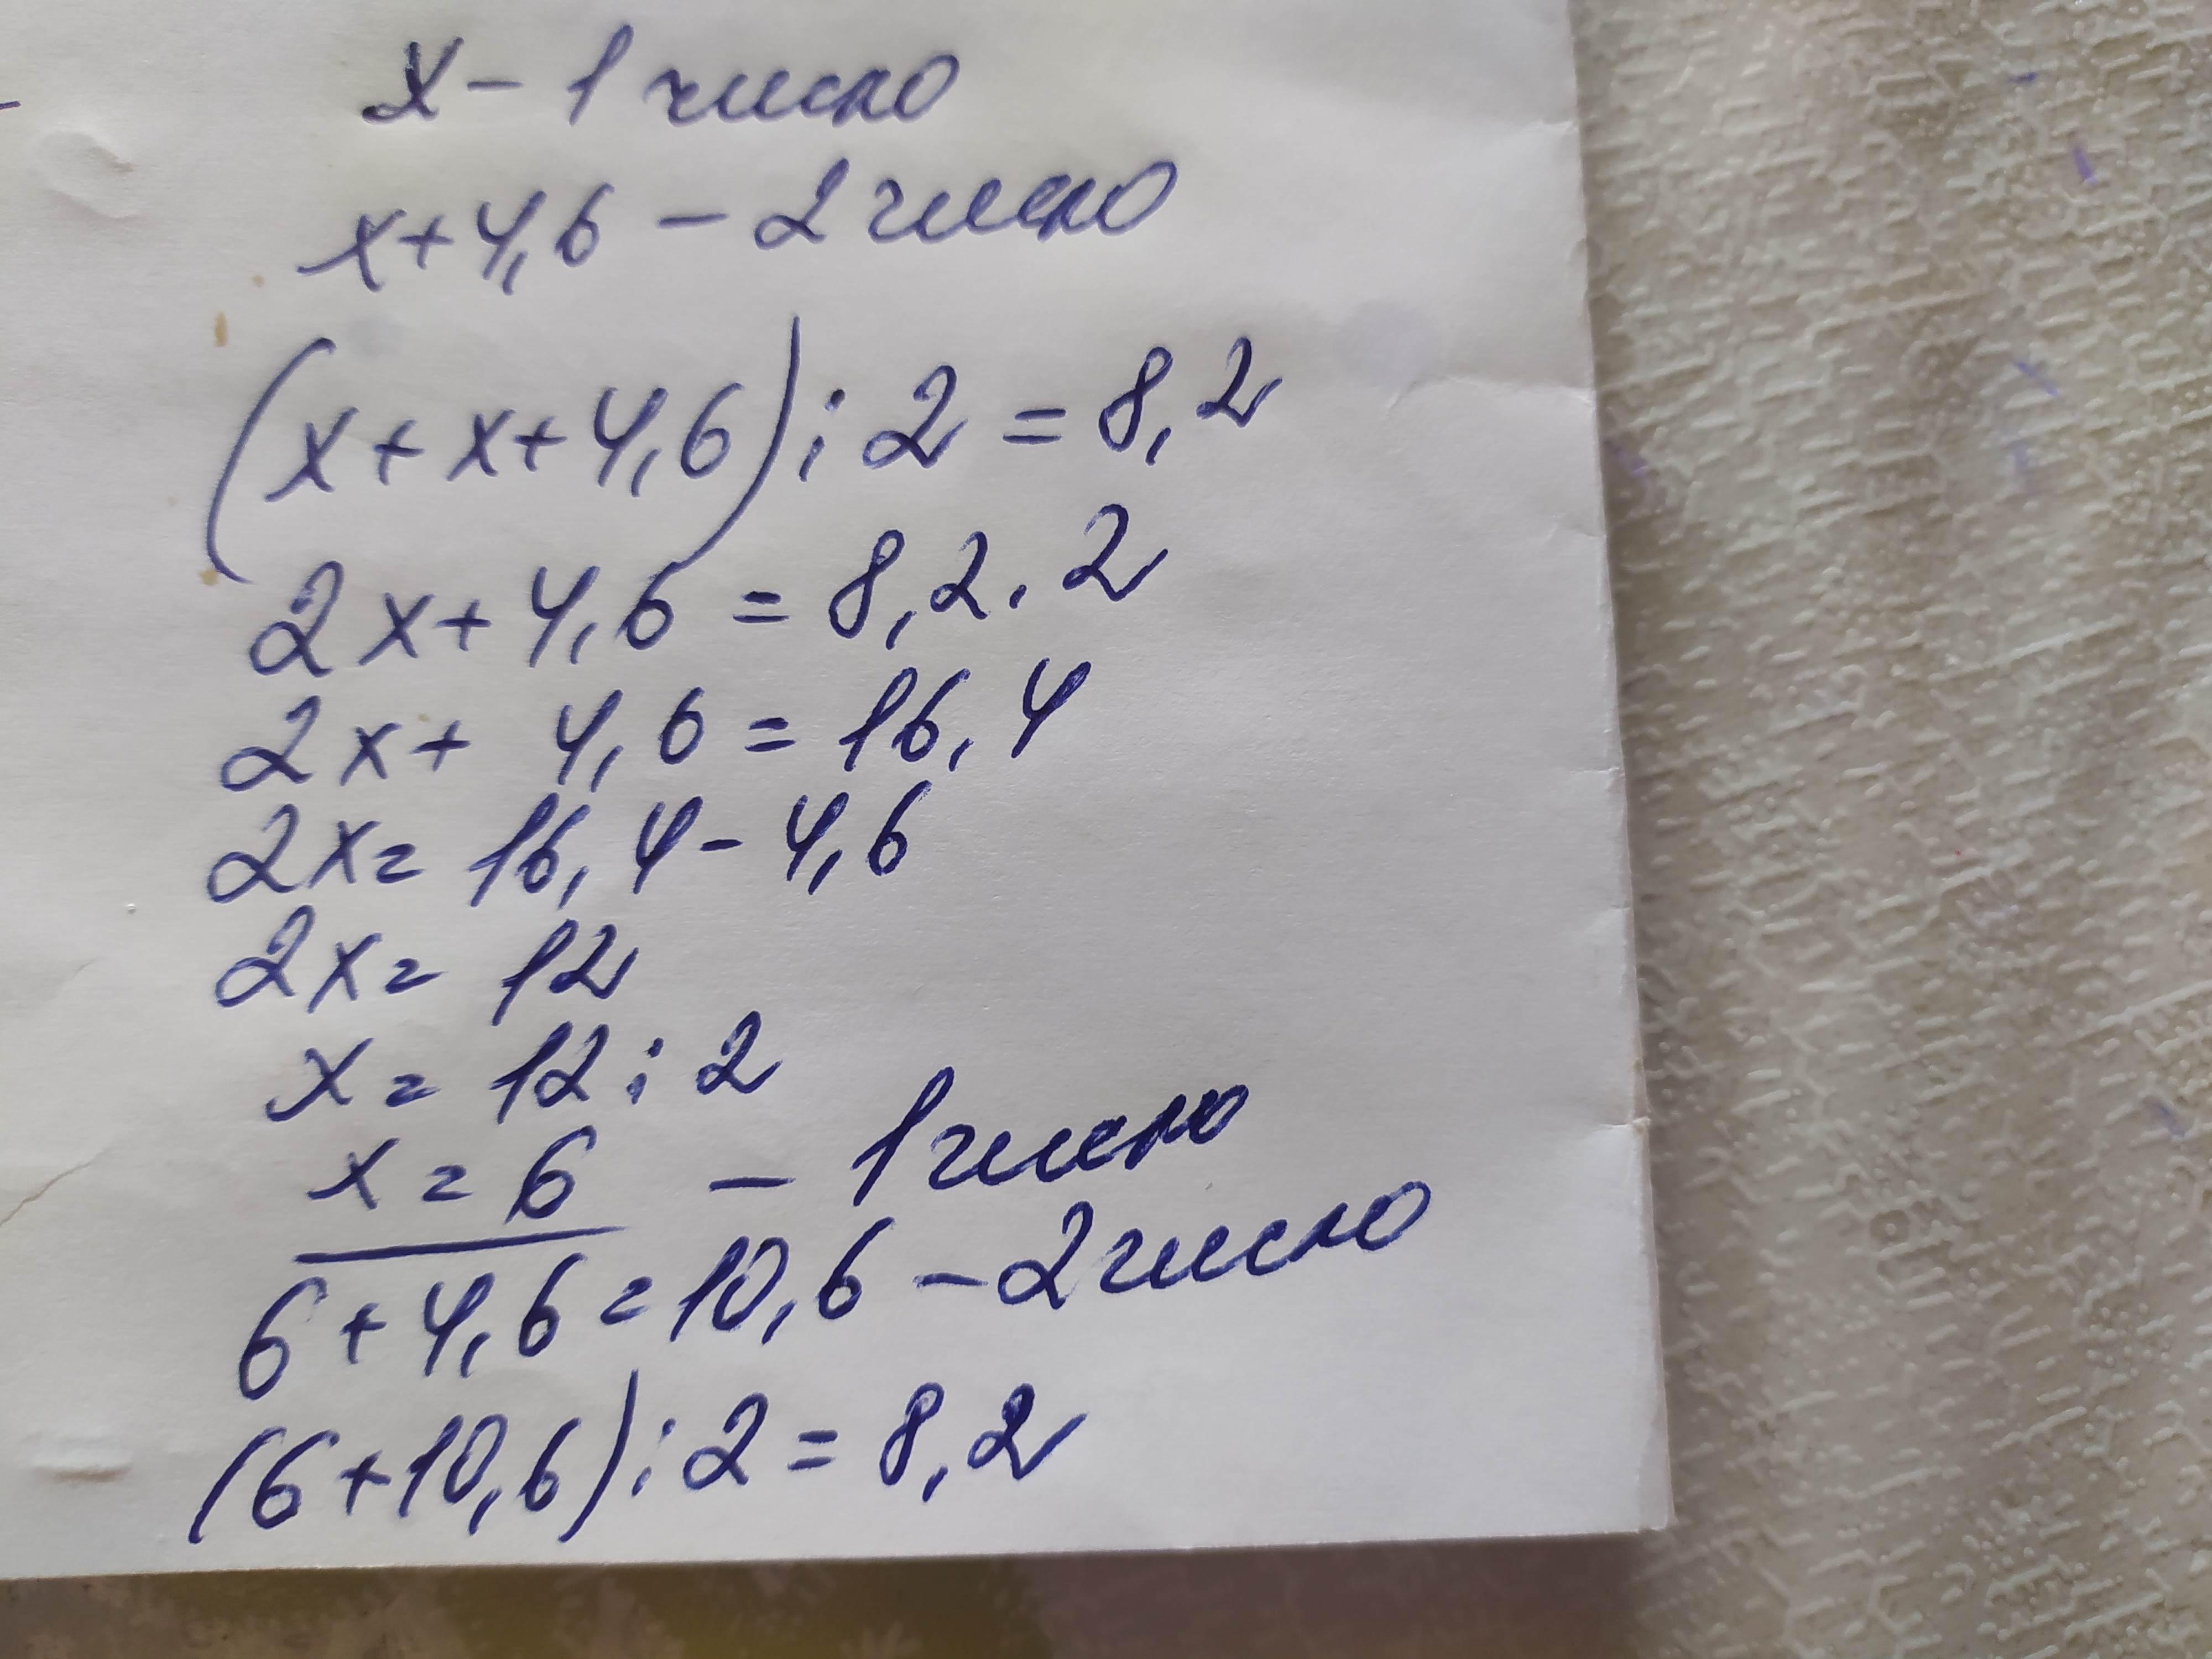 х - 1 число
х+4,6 - 2 число
(х+х+4,6):2=8,2
2х+4,6=8,2.2
2х+4,6=16,4
2х=16,4-4,6
2х=12
х=12:2
х=6 - 1 число
6+4,6=10,6 - 2 число
(6+10,6):2=8,2